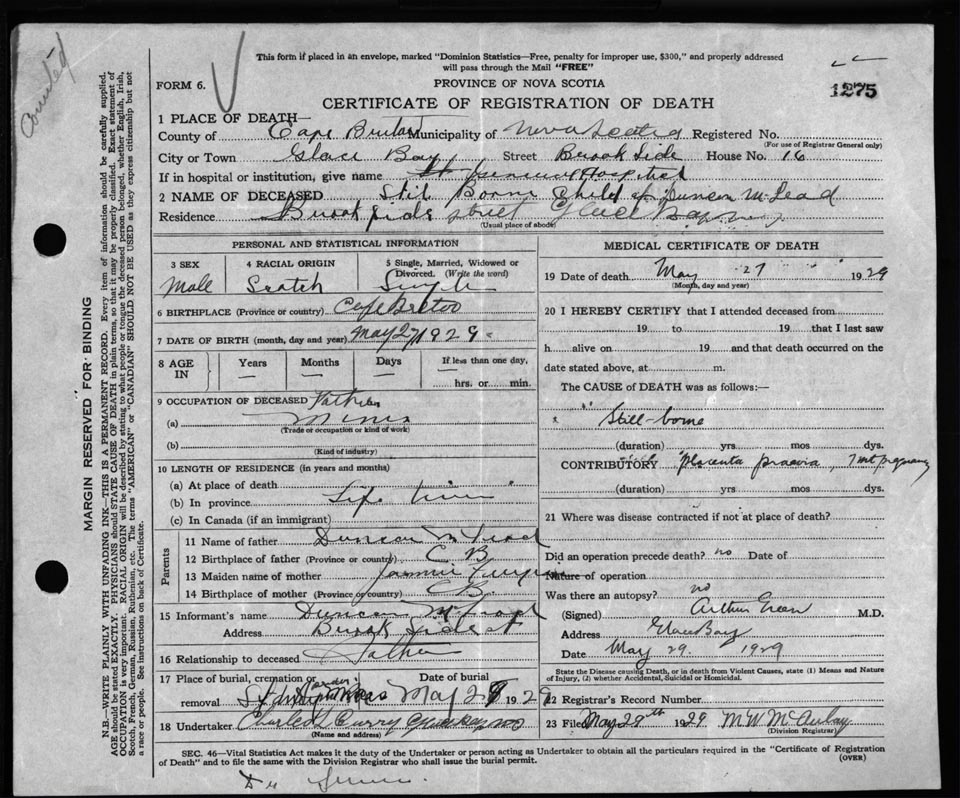 Counted
This form if placed in an envelope, marked "Dominion Statistics—Free, penalty for improper use, $300," and properly addressed
will pass through the Mail "FREE"
FORM 6.
PROVINCE OF NOVA SCOTIA
1275
CERTIFICATE OF REGISTRATION OF DEATH
1 PLACE OF DEATH—
County of Cape Breton Municipality of Nova Scotia Registered No.
(For use of Registrar General only)
City or Town Glace Bay Street Brook Side House No. 16
If in hospital or institution, give name St Hospital
2 NAME OF DECEASED Stil Borne Child of Duncan McLead
Residence Brook side street Glace Bay
(Usual place of abode)
PERSONAL AND STATISTICAL INFORMATION
3 SEX Male
4 RACIAL ORIGIN Scotch
5 Single, Married, Widowed or Divorced. (Write the word) Single
6 BIRTHPLACE (Province or country) Cape Breton
7 DATE OF BIRTH (month, day and year) May 27 1929
8 AGE IN Years — Months — Days — If less than one day, — hrs. or min.
9 OCCUPATION OF DECEASED Father
(a) Miner
(Trade or occupation or kind of work)
(b)
(Kind of industry)
10 LENGTH OF RESIDENCE (in years and months)
(a) At place of death
(b) In province Life time
(c) In Canada (if an immigrant)
Parents
11 Name of father Duncan McLead
12 Birthplace of father (Province or country) C B
13 Maiden name of mother
14 Birthplace of mother (Province or country) C B
15 Informant's name Duncan McLead
Address Brook Side st
16 Relationship to deceased Father
17 Place of burial, cremation or removal
Date of burial May 28 1929
18 Undertaker Charles Curry
(Name and address)
MEDICAL CERTIFICATE OF DEATH
19 Date of death May 27 1929
(Month, day and year)
20 I HEREBY CERTIFY that I attended deceased from
19 to 19 that I last saw
h alive on 19 and that death occurred on the
date stated above, at m.
The CAUSE of DEATH was as follows:—
Still-borne
(duration) yrs mos dys.
CONTRIBUTORY placenta praevia, 7 mt pregnancy
(duration) yrs mos dys.
21 Where was disease contracted if not at place of death?
Did an operation precede death? no Date of
Nature of operation
Was there an autopsy? no
(Signed) Arthur Green M.D.
Address Glace Bay
Date May 29. 1929
State the Disease causing Death, or in death from Violent Causes, state (1) Means and Nature
of Injury, (2) whether Accidental, Suicidal or Homicidal.
22 Registrar's Record Number
23 Filed May 29th 1929 M W McAulay
(Division Registrar)
SEC. 46—Vital Statistics Act makes it the duty of the Undertaker or person acting as Undertaker to obtain all the particulars required in the "Certificate of Registration
of Death" and to file the same with the Division Registrar who shall issue the burial permit.
(OVER)
MARGIN RESERVED FOR BINDING
N.B.—WRITE PLAINLY WITH UNFADING INK—THIS IS A PERMANENT RECORD. Every item of information should be carefully supplied.
AGE should be stated EXACTLY. PHYSICIANS should STATE CAUSE OF DEATH in plain terms, so that it may be properly classified. Exact statement of
OCCUPATION is very important. RACIAL ORIGIN will be described by stating to what people or tongue the deceased person belonged, whether English, Irish,
Scotch, French, German, Russian, Ruthenian, etc. The terms "AMERICAN" or "CANADIAN" SHOULD NOT BE USED as they express citizenship but not
a race or people. See instructions on back of Certificate.